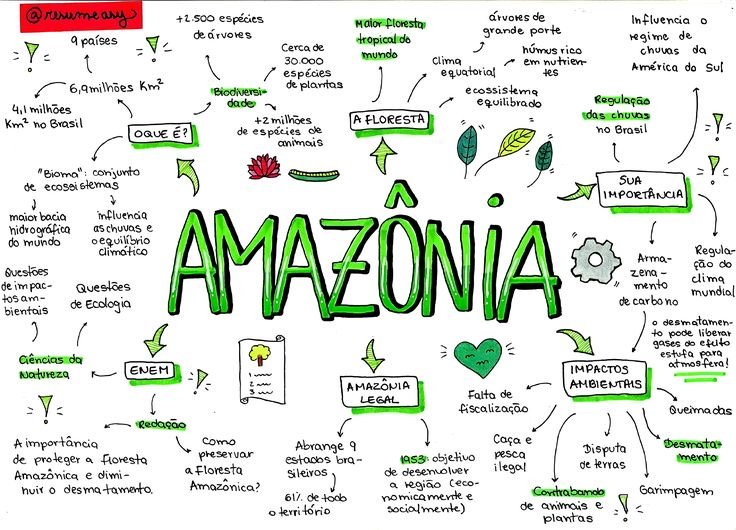 @resumeasy
9 países
6,9 milhões Km²
4,1 milhões
Km² no Brasil
O QUE É?
"Bioma": conjunto
de ecossistemas
maior bacia
hidrográfica
do mundo
influencia
as chuvas e
o equilíbrio
climático
+2.500 espécies
de árvores
Biodiversi-
dade
Cerca de
30.000
espécies
de plantas
+2 milhões
de espécies de
animais
Maior floresta
tropical do
mundo
A FLORESTA
Clima
equatorial
árvores de
grande porte
húmus rico
em nutrien-
tes
ecossistema
equilibrado
Influencia o
regime de
chuvas da
América do Sul
Regulação
das chuvas
no Brasil
SUA
IMPORTÂNCIA
Arma-
zena-
mento
de carbono
Regula-
ção do
clima
mundial
o desmatamen-
to pode liberar
gases do efeito
estufa para
atmosfera!
AMAZÔNIA
Questões
de impac-
tos am-
bientais
Questões
de Ecologia
Ciências da
Natureza
ENEM
Redação
A importância
de proteger a floresta
Amazônica e dimi-
nuir o desmatamento.
Como
preservar
a floresta
Amazônica?
1
2
3
AMAZÔNIA
LEGAL
Abrange 9
estados bra-
sileiros
61% de todo
o território
1953: objetivo
de desenvolver
a região (eco-
nomicamente e
socialmente)
IMPACTOS
AMBIENTAIS
Falta de
fiscalização
Caça e
pesca
ilegal
Contrabando
de animais e
plantas
Disputa
de terras
Garimpagem
Desmata-
mento
Queimadas